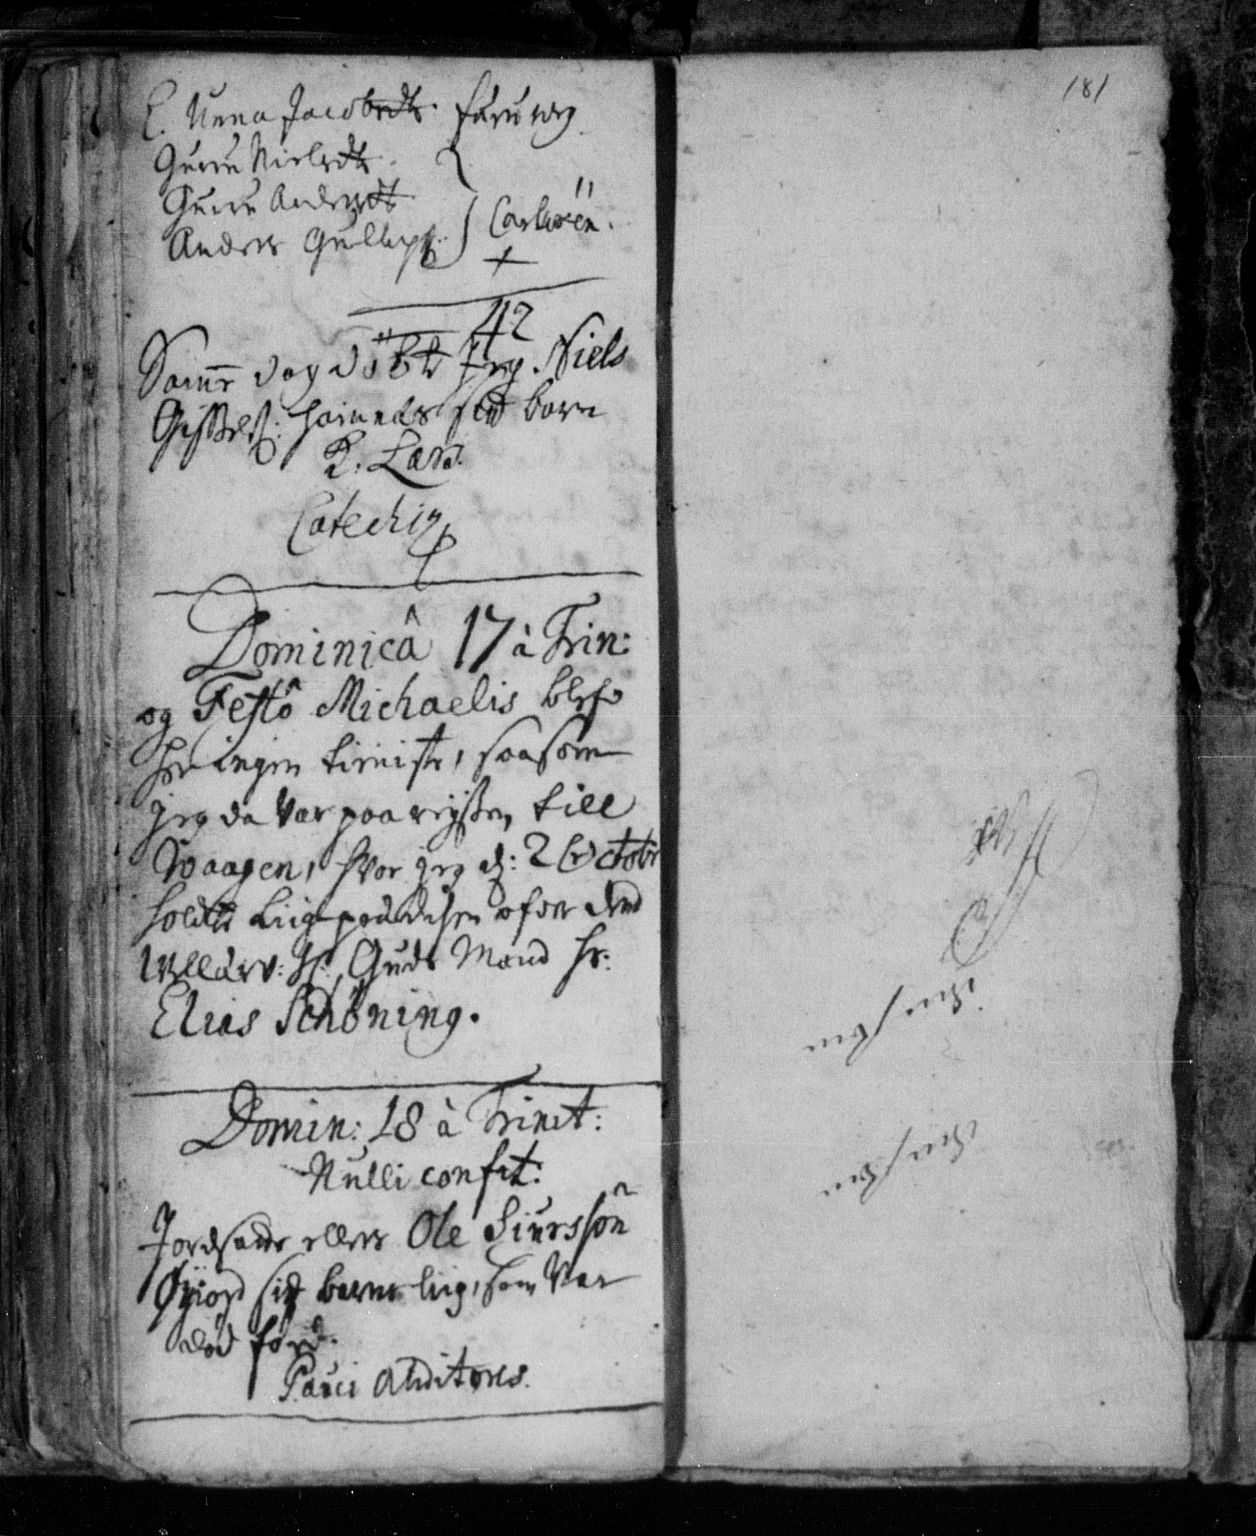 E. Anna Jacobsdtr. faruveg
Guru Nielsdtr.
Guru Andersdtr.
Anders Gullichs: } Carlsöen.
42
Samme dag döbte jeg Niels
Gisßels: hans barn
K. Lars.
Catechiz
Dominicâ 17 à Trin:
og Festô Michaelis blef
her ingen tieniste, saasom
jeg da var paa reyßen till
Waagen, hvor jeg d: 2 Octobr
holdte Liigprædichen ofver dend
Vellærv: Guds Mand Hr:
Elias Schöning.
Domin: 18 à Trinit:
Nulli confit:
Jordfæste ellers Ole Siurssön
Øxiord sit barns liig, som var
död föd.
Pauci Auditores.
181